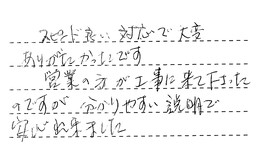 スピード良い対応で大変
ありがたかったです
営業の方が工事に来て下さった
のですが分かりやすい説明で
安心出来ました